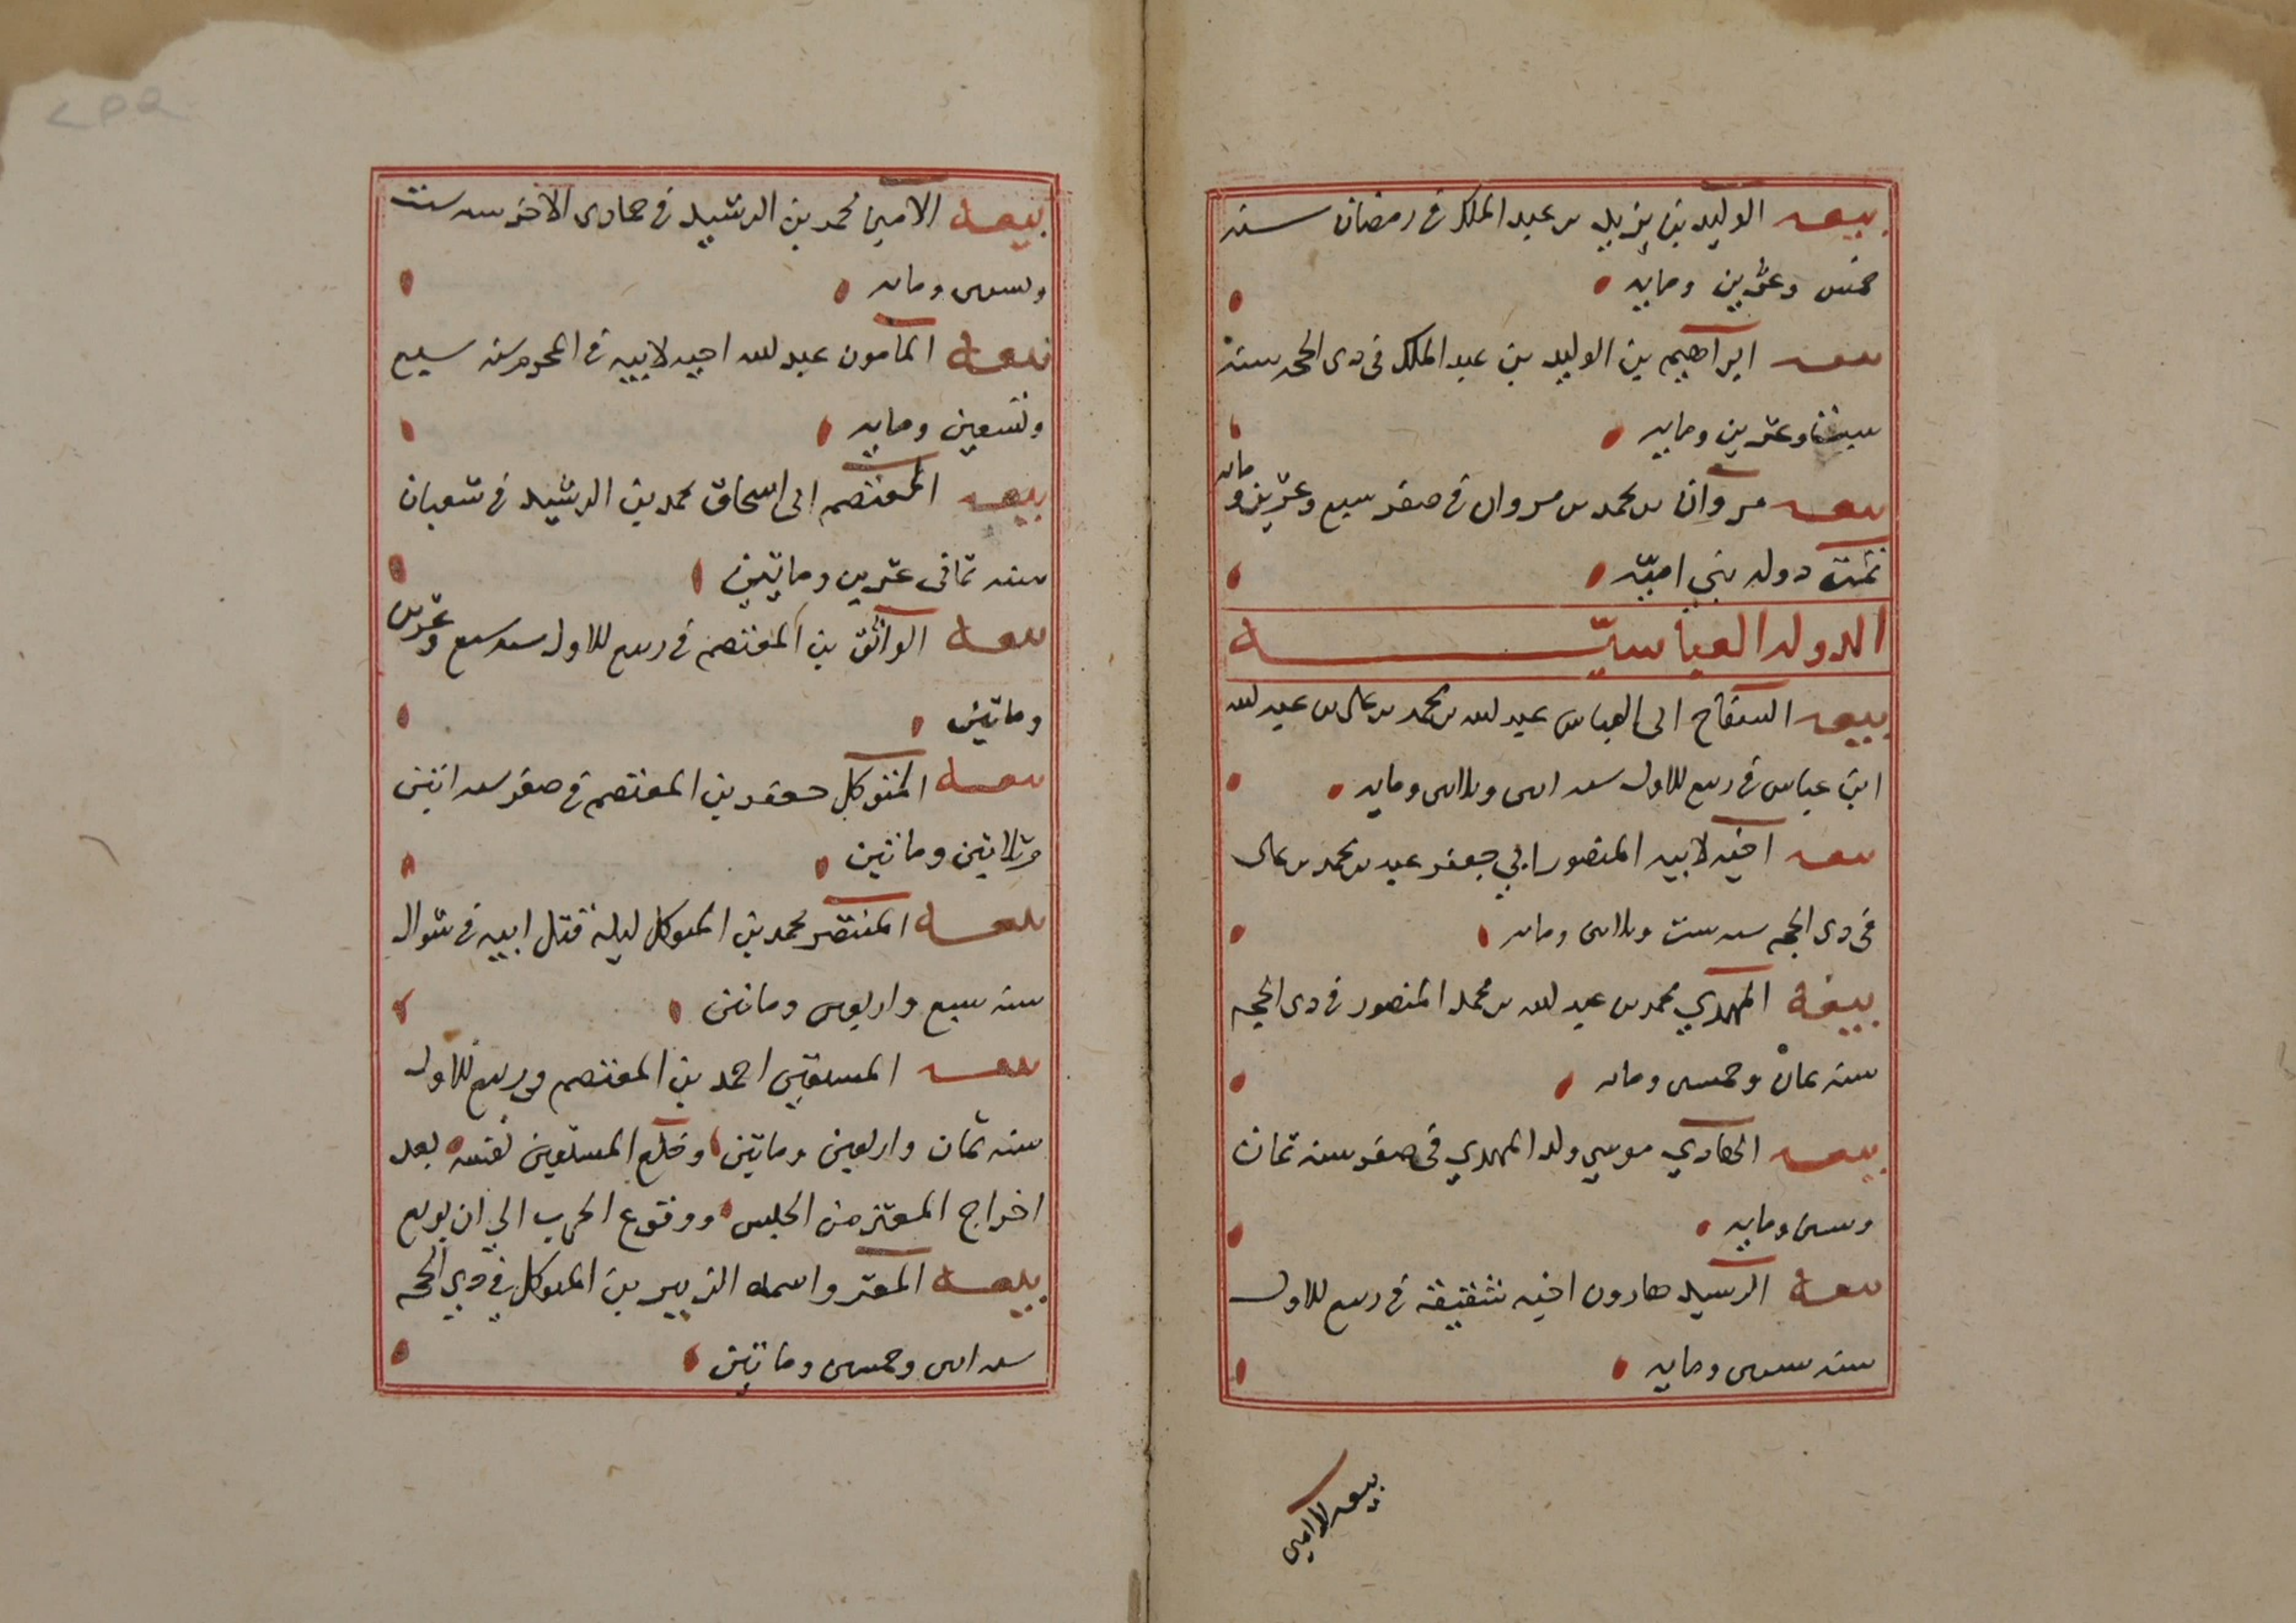 بيعه الوليد بن يزيد بن عبد الملك في رمضان سنه
خمس وعشرين ومايه
بيعه ابراهيم بن الوليد بن عبد الملك في ذي الحجه سنة
ست وعشرين ومايه
بيعه مروان بن محمد بن مروان في صفر سبع وعشرين ومايه
تمت دوله بني اميّه
الدوله العباسيّه
بيعه السفاح ابي العباس عبد الله بن محمد بن علي بن عبد الله
ابن عباس في ربيع الاول سنه اثنين وثلاثين ومايه
بيعه اخيه لابيه المنصور ابي جعفر عبد بن محمد بن علي
في ذي الحجه سنه ست وثلاثين ومايه
بيعة المهدي محمد بن عبد الله بن محمد المنصور في ذي الحجه
سنه ثمان وخمسين ومايه
بيعه الهادي موسي ولد المهدي في صفر سنه ثمان
وستين ومايه
بيعة الرشيد هارون اخيه شقيقه في ربيع الاول
سنه سبعين ومايه
بيعه الامين
بيعة الامين محمد بن الرشيد في جمادى الاخر سنه ست
وتسعين ومايه
بيعة المامون عبد الله اخيه لابيه في المحرم سنه سبع
وتسعين ومايه
بيعه المعتصم ابي اسحاق محمد بن الرشيد في شعبان
سنه ثماني عشرين وماتين
بيعة الواثق بن المعتصم في ربيع الاول سنه سبع وعشرين
وماتين
بيعة المتوكل جعفر بن المعتصم في صفر سنه اثنين
وثلاثين وماتين
بيعة المنتصر محمد بن المتوكل ليلة قتل ابيه في شوال
سنه سبع واربعين وماتين
بيعه المستعين احمد بن المعتصم في ربيع الاول
سنه ثمان واربعين وماتين وخلع المستعين نفسه بعد
اخراج المعتز من الحبس ووقوع الحرب الي ان بويع
بيعة المعتز واسمه الزبير بن المتوكل في ذي الحجه
سنه اثنين وخمسين وماتين